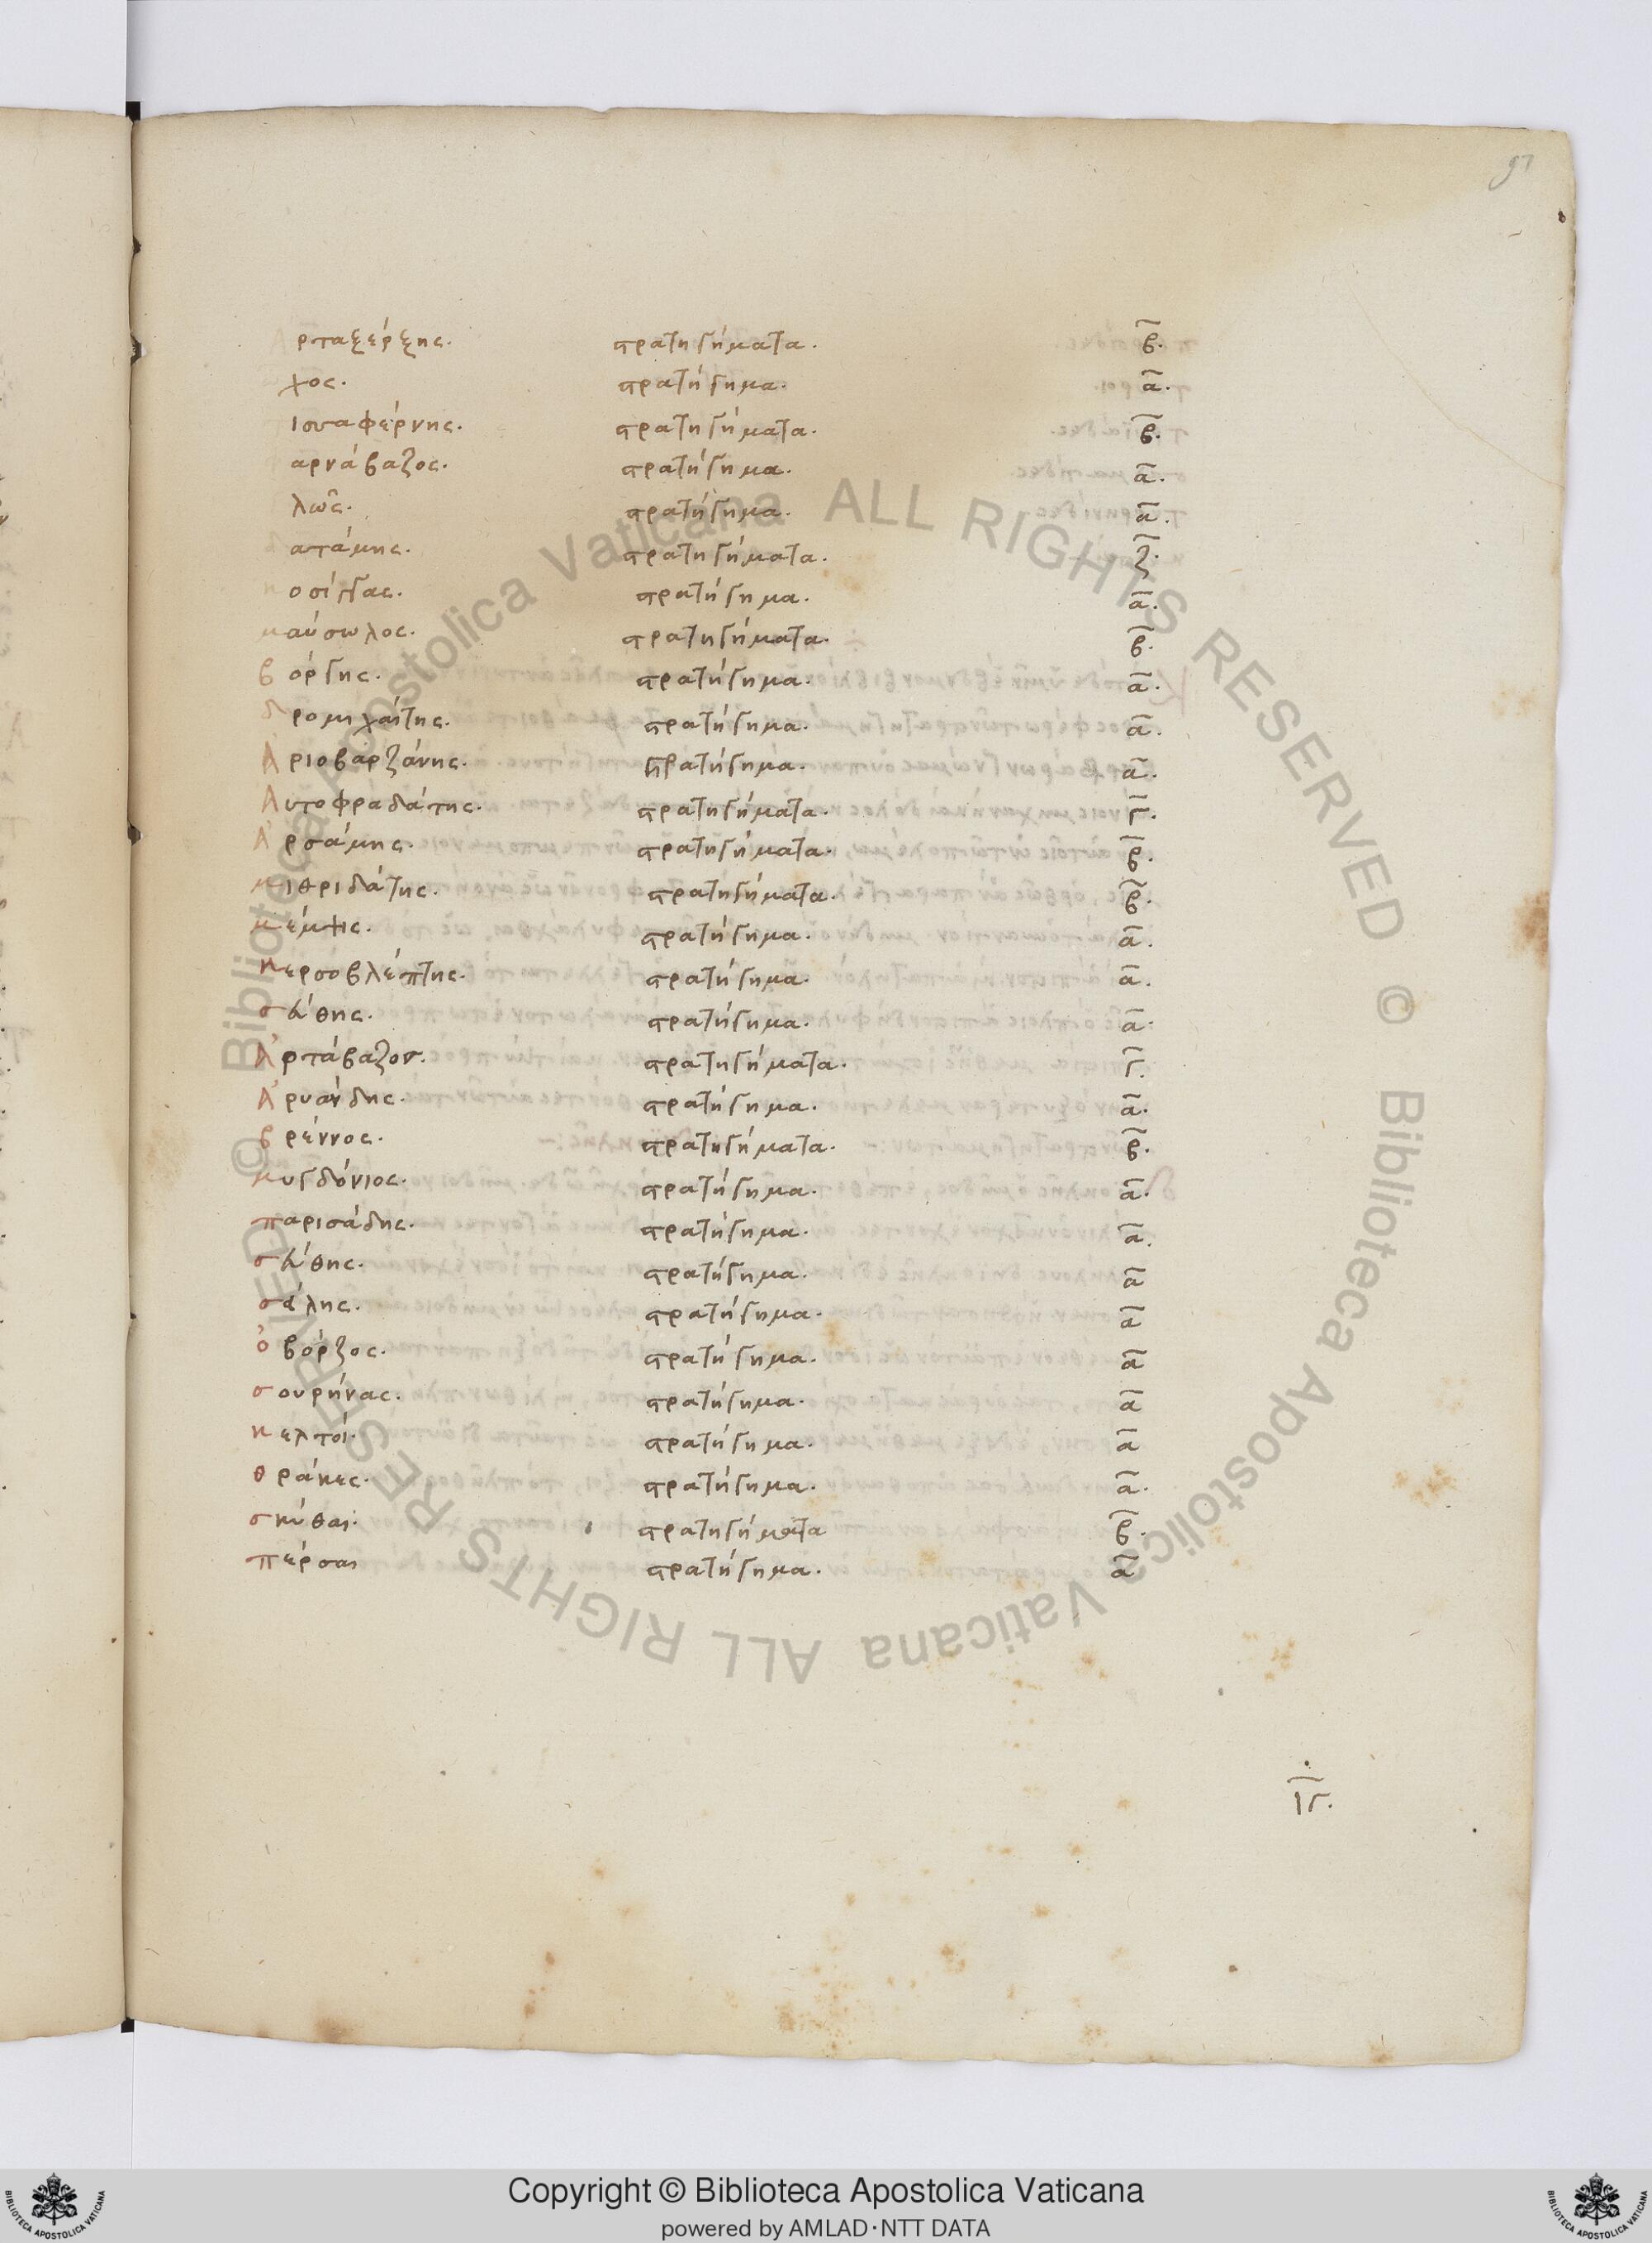 97
Αρταξέρξης. στρατηγήματα. β.
χος. στρατήγημα. α.
ισσαφέρνης. στρατηγήματα. β.
αρνάβαζος. στρατήγημα. α.
λῶς. στρατήγημα. α.
δατάμης. στρατηγήματα. ζ.
κοσίγγας. στρατήγημα. α.
μαύσωλος. στρατηγήματα. β.
βόργης. στρατήγημα. α.
δρομιχαίτης. στρατήγημα. α.
Ἀριοβαρζάνης. στρατήγημα. α.
Αυτοφραδάτης. στρατηγήματα. γ.
Ἀρσάμης. στρατηγήματα. β.
μιθριδάτης. στρατηγήματα. β.
μέμψις. στρατήγημα. α.
κερσοβλέπτης. στρατήγημα. α.
σεύθης. στρατήγημα. α.
Ἀρτάβαζον. στρατηγήματα. γ.
Ἀρυάνδης. στρατήγημα. α.
βρέννος. στρατηγήματα. β.
μυγδόνιος. στρατήγημα. α.
παρισάδης. στρατήγημα. α.
σεύθης. στρατήγημα. α
σάλης. στρατήγημα. α
ὀβόρζος. στρατήγημα. α
σουρήνας. στρατήγημα. α
κελτοί. στρατήγημα. α
θράκες. στρατήγημα. α.
σκύθαι. στρατηγήματα β.
πέρσαι στρατήγημα. α
ιγ.
© Biblioteca Apostolica Vaticana ALL RIGHTS RESERVED © Biblioteca Apostolica Vaticana ALL RIGHTS RESERVED
Copyright © Biblioteca Apostolica Vaticana
powered by AMLAD·NTT DATA
BIBLIOTECA APOSTOLICA VATICANA
BIBLIOTECA APOSTOLICA VATICANA